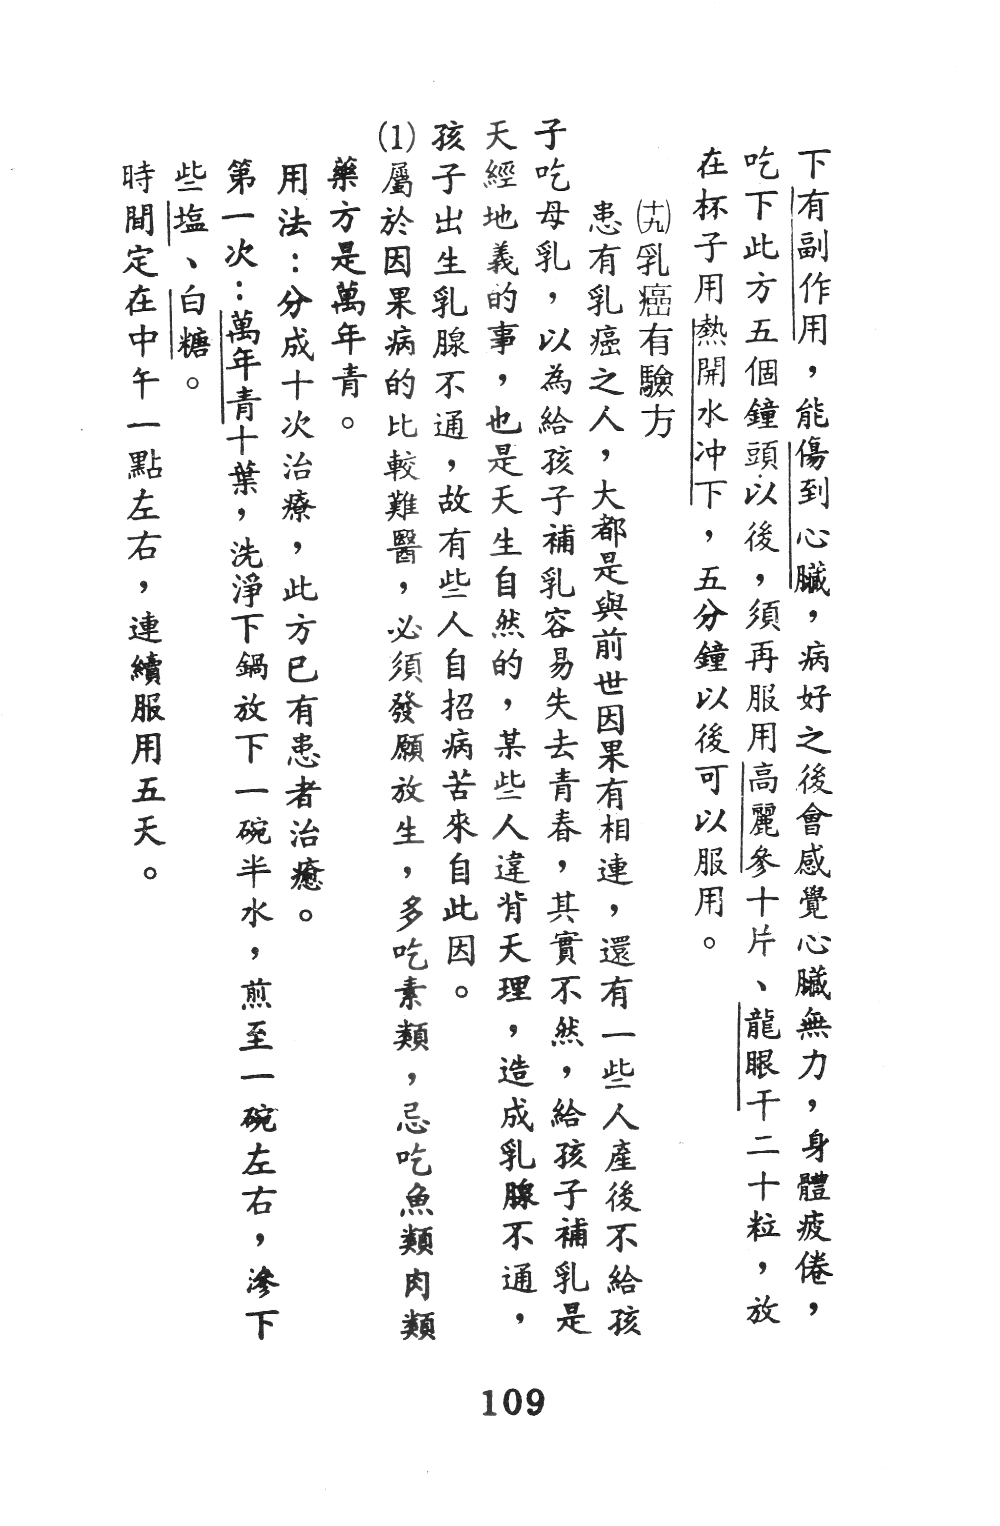 下有副作用，能傷到心臟，病好之後會感覺心臟無力，身體疲倦，
吃下此方五個鐘頭以後，須再服用高麗參十片、龍眼干二十粒，放
在杯子用熱開水冲下，五分鐘以後可以服用。
㈩九乳癌有驗方
患有乳癌之人，大都是與前世因果有相連，還有一些人產後不給孩
子吃母乳，以為給孩子補乳容易失去青春，其實不然，給孩子補乳是
天經地義的事，也是天生自然的，某些人違背天理，造成乳腺不通，
孩子出生乳腺不通，故有些人自招病苦來自此因。
(1)屬於因果病的比較難醫，必須發願放生，多吃素類，忌吃魚類肉類
藥方是萬年青。
用法：分成十次治療，此方已有患者治癒。
第一次：萬年青十葉，洗淨下鍋放下一碗半水，煎至一碗左右，滲下
些塩、白糖。
時間定在中午一點左右，連續服用五天。
109